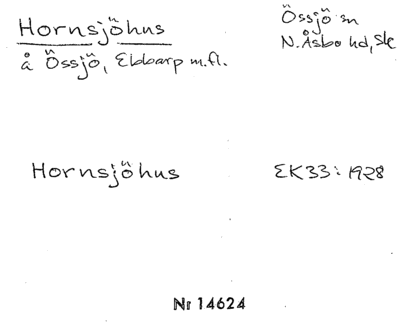 Hornsjöhus
Össjö sn
N. Åsbo hd, Sk
å Össjö, Ebbarp m.fl.
Hornsjöhus
EK33: 1928
Nr 14624